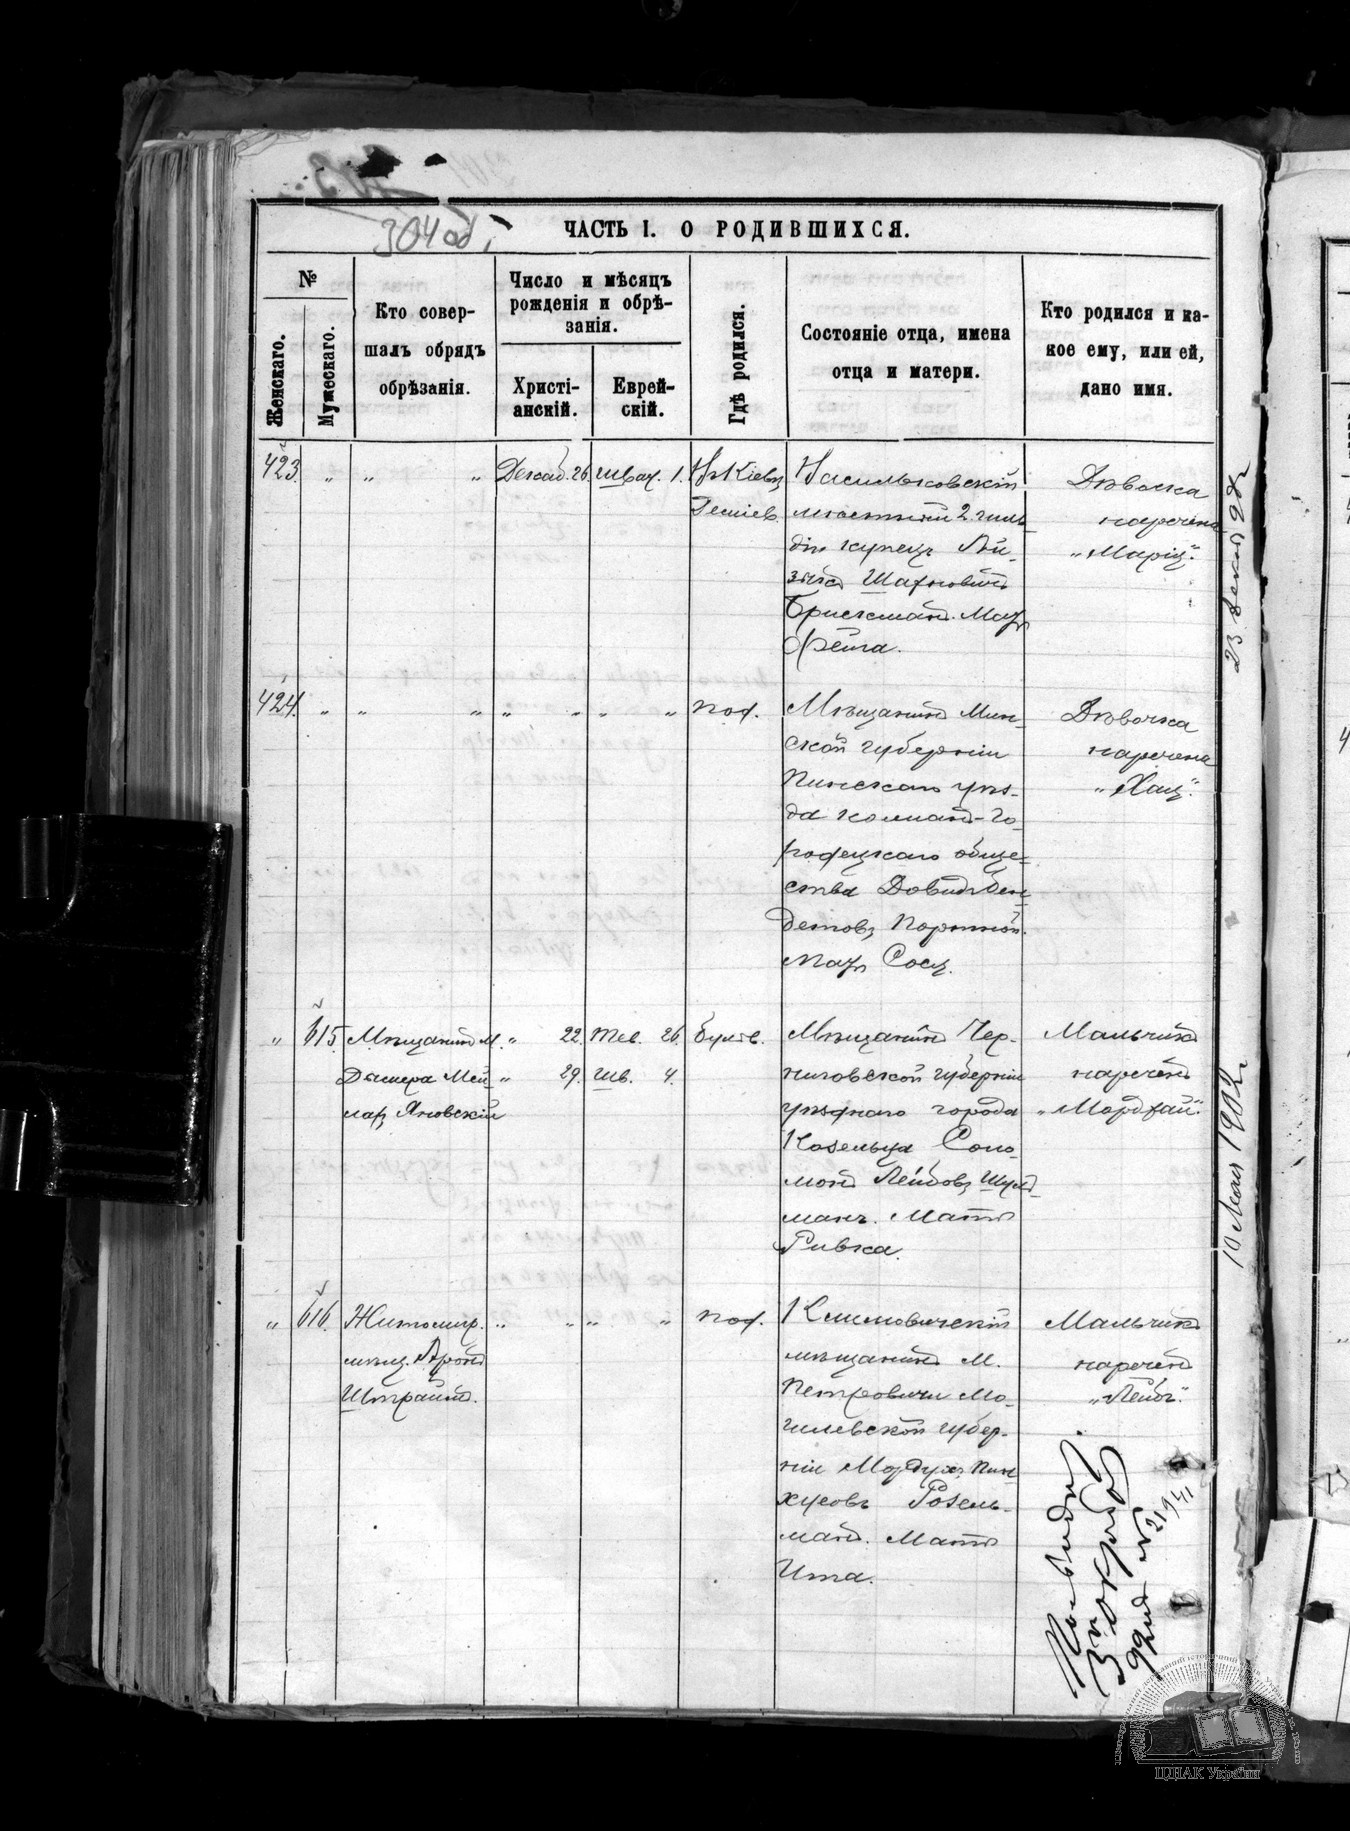 304 об.
ЧАСТЬ I. О РОДИВШИХСЯ.
№
Женскаго.
Мужескаго.
Кто совер-
шалъ обрядъ
обрѣзанія.
Число и мѣсяцъ
рожденія и обрѣ-
занія.
Христі-
анскій.
Еврей-
скій.
Гдѣ родился.
Состояніе отца, имена
отца и матери.
Кто родился и ка-
кое ему, или ей,
дано имя.
423. " " " Декаб. 26. Шват. 1.
Васильковскій
2 гиль-
діи купецъ
Брискманъ. Мать
Дѣвочка
наречена
"Марія".
424. " " " " " " "
Мѣщанинъ Мин-
ской губерніи
Пинскаго уѣз-
да
родецкаго обще-
ства Довидъ Бен-
Портной.
Мать Сося.
Дѣвочка
наречена
"Хая".
" 615. Мѣщанинъ м.
Дымера Мей-
Яновскій
" 22. Тев. 26.
" 29. Шв. 4.
Мѣщанинъ Чер-
ниговской губерніи
уѣзднаго города
Козельца Соло-
монъ Лейбовъ Шул-
манъ. Мать
Ривка.
Мальчикъ
нареченъ
"Мордхай".
" 616. Житомир.
мѣщ. Аронъ
Штраймъ.
" " " "
Климовичскій
мѣщанинъ м.
Петровичи Мо-
гилевской губер-
ніи Мордухъ Пин-
хусовъ Розель-
манъ. Мать
Ита.
Мальчикъ
нареченъ
"Лейбъ".
10 Мая 1902 г.
ЦДІАК України